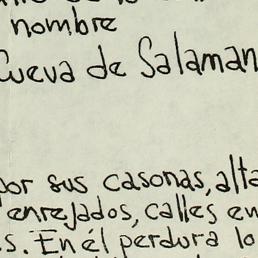 nombre
Cueva de Salaman
por sus casonas, alta
enrejados, calles en
s. En él perdura lo